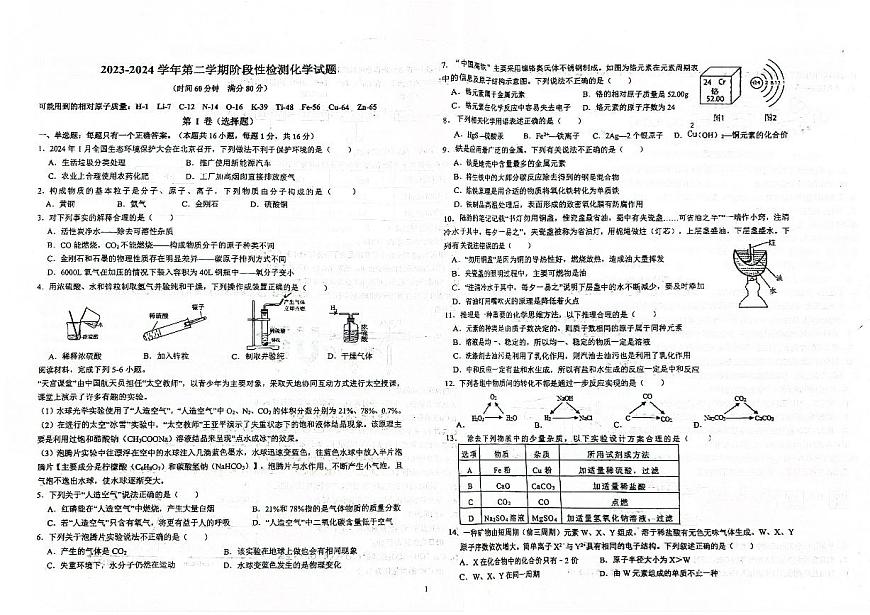 2023-2024 学年第二学期阶段性检测化学试题
(时间 60 分钟 满分 80 分)
可能用到的相对原子质量: H-1 Li-7 C-12 N-14 O-16 K-39 Ti-48 Fe-56 Cu-64 Zn-65
第 I 卷(选择题)
一、单选题:每题只有一个正确答案。(本题共 16 小题,每题 1 分,共 16 分)
1. 2024 年 1 月全国生态环境保护大会在北京召开,下列做法不利于保护环境的是( )
A. 生活垃圾分类处理 B. 推广使用新能源汽车
C. 农业上合理使用农药化肥 D. 工厂加高烟囱直接排放废气
2. 构成物质的基本粒子是分子、原子、离子,下列物质由分子构成的是( )
A. 黄铜 B. 氨气 C. 金刚石 D. 硫酸铜
3. 对下列事实的解释合理的是( )
A. 活性炭净水——除去可溶性杂质
B. CO 能燃烧,CO₂不能燃烧——构成物质分子的原子种类不同
C. 金刚石和石墨的物理性质存在明显差异——碳原子排列方式不同
D. 6000L 氧气在加压的情况下装入容积为 40L 钢瓶中——氧分子变小
4. 用浓硫酸、水和锌粒制取氢气并验纯和干燥,下列操作或装置正确的是( )
水 浓硫酸 稀硫酸 镊子 产生气体立即点燃 稀硫酸 锌粒 H₂ 浓硫酸
A. 稀释浓硫酸 B. 加入锌粒 C. 制取并验纯 D. 干燥气体
阅读材料,完成下列 5-6 小题。
“天宫课堂”由中国航天员担任“太空教师”,以青少年为主要对象,采取天地协同互动方式进行太空授课,
课堂上演示了许多有趣的实验。
(1)水球光学实验使用了“人造空气”,“人造空气”中 O₂、N₂、CO₂的体积分数分别为 21%、78%、0.7%。
(2)在进行的太空“冰雪”实验中,“太空教师”王亚平演示了失重状态下的饱和液体结晶现象。该原理主
要是利用过饱和醋酸钠(CH₃COONa)溶液结晶来呈现“点水成冰”的效果。
(3)泡腾片实验中往漂浮在空中的水球注入几滴蓝色墨水,水球迅速变蓝色,往蓝色水球中放入半片泡
腾片【主要成分是柠檬酸(C₆H₈O₇)和碳酸氢钠(NaHCO₃)】,泡腾片与水作用,不断产生小气泡,且
气泡不逸出水球,使水球逐渐变大。
5. 下列关于“人造空气”说法正确的是( )
A. 红磷能在“人造空气”中燃烧,产生大量白烟 B. 21%和 78%指的是气体物质的质量分数
C. 若“人造空气”只含有氧气,将更有益于人的呼吸 D. “人造空气”中二氧化碳含量低于空气
6. 下列关于泡腾片实验说法不正确的是( )
A. 产生的气体是 CO₂ B. 该实验在地球上做也会有相同现象
C. 失重环境下,水分子仍然在运动 D. 水球变蓝色发生的是物理变化
1
7. “中国高铁”主要采用镍铬奥氏体不锈钢制成。如图为铬元素在元素周期表
中的信息及原子结构示意图。下列说法不正确的是( )
A. 铬元素属于金属元素 B. 铬的相对原子质量是 52.00g
C. 铬元素在化学反应中容易失去电子 D. 铬元素的原子序数为 24
24 Cr
铬
52.00
图1 图2
8. 下列相关化学用语表述正确的是( )
A. HgS—硫酸汞 B. Fe³⁺—铁离子 C. 2Ag—2 个银原子 D. Cu(OH)₂—铜元素的化合价
9. 铁是应用最广泛的金属,下列有关说法不正确的是( )
A. 铁是地壳中含量最多的金属元素
B. 将生铁中的大部分碳反应除去后得到的钢是混合物
C. 炼铁原理是用合适的物质将氧化铁转化为单质铁
D. 铁制品高温处理后,表面形成的致密氧化膜有防腐作用
10. 陆游的笔记记载“书灯勿用铜盏,惟瓷盏最省油,蜀中有夹瓷盏……可省油之半”“一端作小窍,注清
冷水于其中,每夕一易之”,夹瓷盏被称为省油灯,用棉绳做炷(灯芯),上层盏盛油,下层盏盛水。下
列有关说法错误的是( )
A. “勿用铜盏”是因为铜的导热性好,燃烧放热,造成油大量挥发
B. 夹瓷盏的照明过程中,主要可燃物是油
C. “注清冷水于其中,每夕一易之”说明下层盏中的水不断减少,要及时添加
D. 省油灯用嘴吹灭的原理是降低着火点
炷
油
水
11. 推理是一种重要的化学思维方法,以下推理合理的是( )
A. 元素的种类是由质子数决定的,则质子数相同的原子属于同种元素
B. 溶液是均一、稳定的,所以均一、稳定的物质一定是溶液
C. 洗涤剂去油污是利用了乳化作用,则汽油去油污也是利用了乳化作用
D. 中和反应一定有盐和水生成,所以有盐和水生成的反应一定是中和反应
12. 下列各组中物质间的转化不都是通过一步反应实现的是( )
A. O₂ H₂O₂ H₂O B. NaOH H₂ NaCl C. CO₂ C CO D. CO₂ Na₂CO₃ CaCO₃
13. 除去下列物质中的少量杂质,以下实验设计方案合理的是( )
选项 物质 杂质 所用试剂或方法
A Fe 粉 Cu 粉 加适量稀硫酸,过滤
B CaO CaCO₃ 加适量稀盐酸
C CO₂ CO 点燃
D Na₂SO₄溶液 MgSO₄ 加适量氢氧化钠溶液,过滤
14. 一种矿物由短周期(前三周期)元素 W、X、Y 组成,溶于稀盐酸有无色无味气体生成。W、X、Y
原子序数依次增大。简单离子 X²⁻与 Y²⁺具有相同的电子结构。下列叙述正确的是( )
A. X 在化合物中的化合价只有 - 2 价 B. 原子半径大小为 X>W
C. W、X、Y 在同一周期 D. 由 W 元素组成的单质不止一种